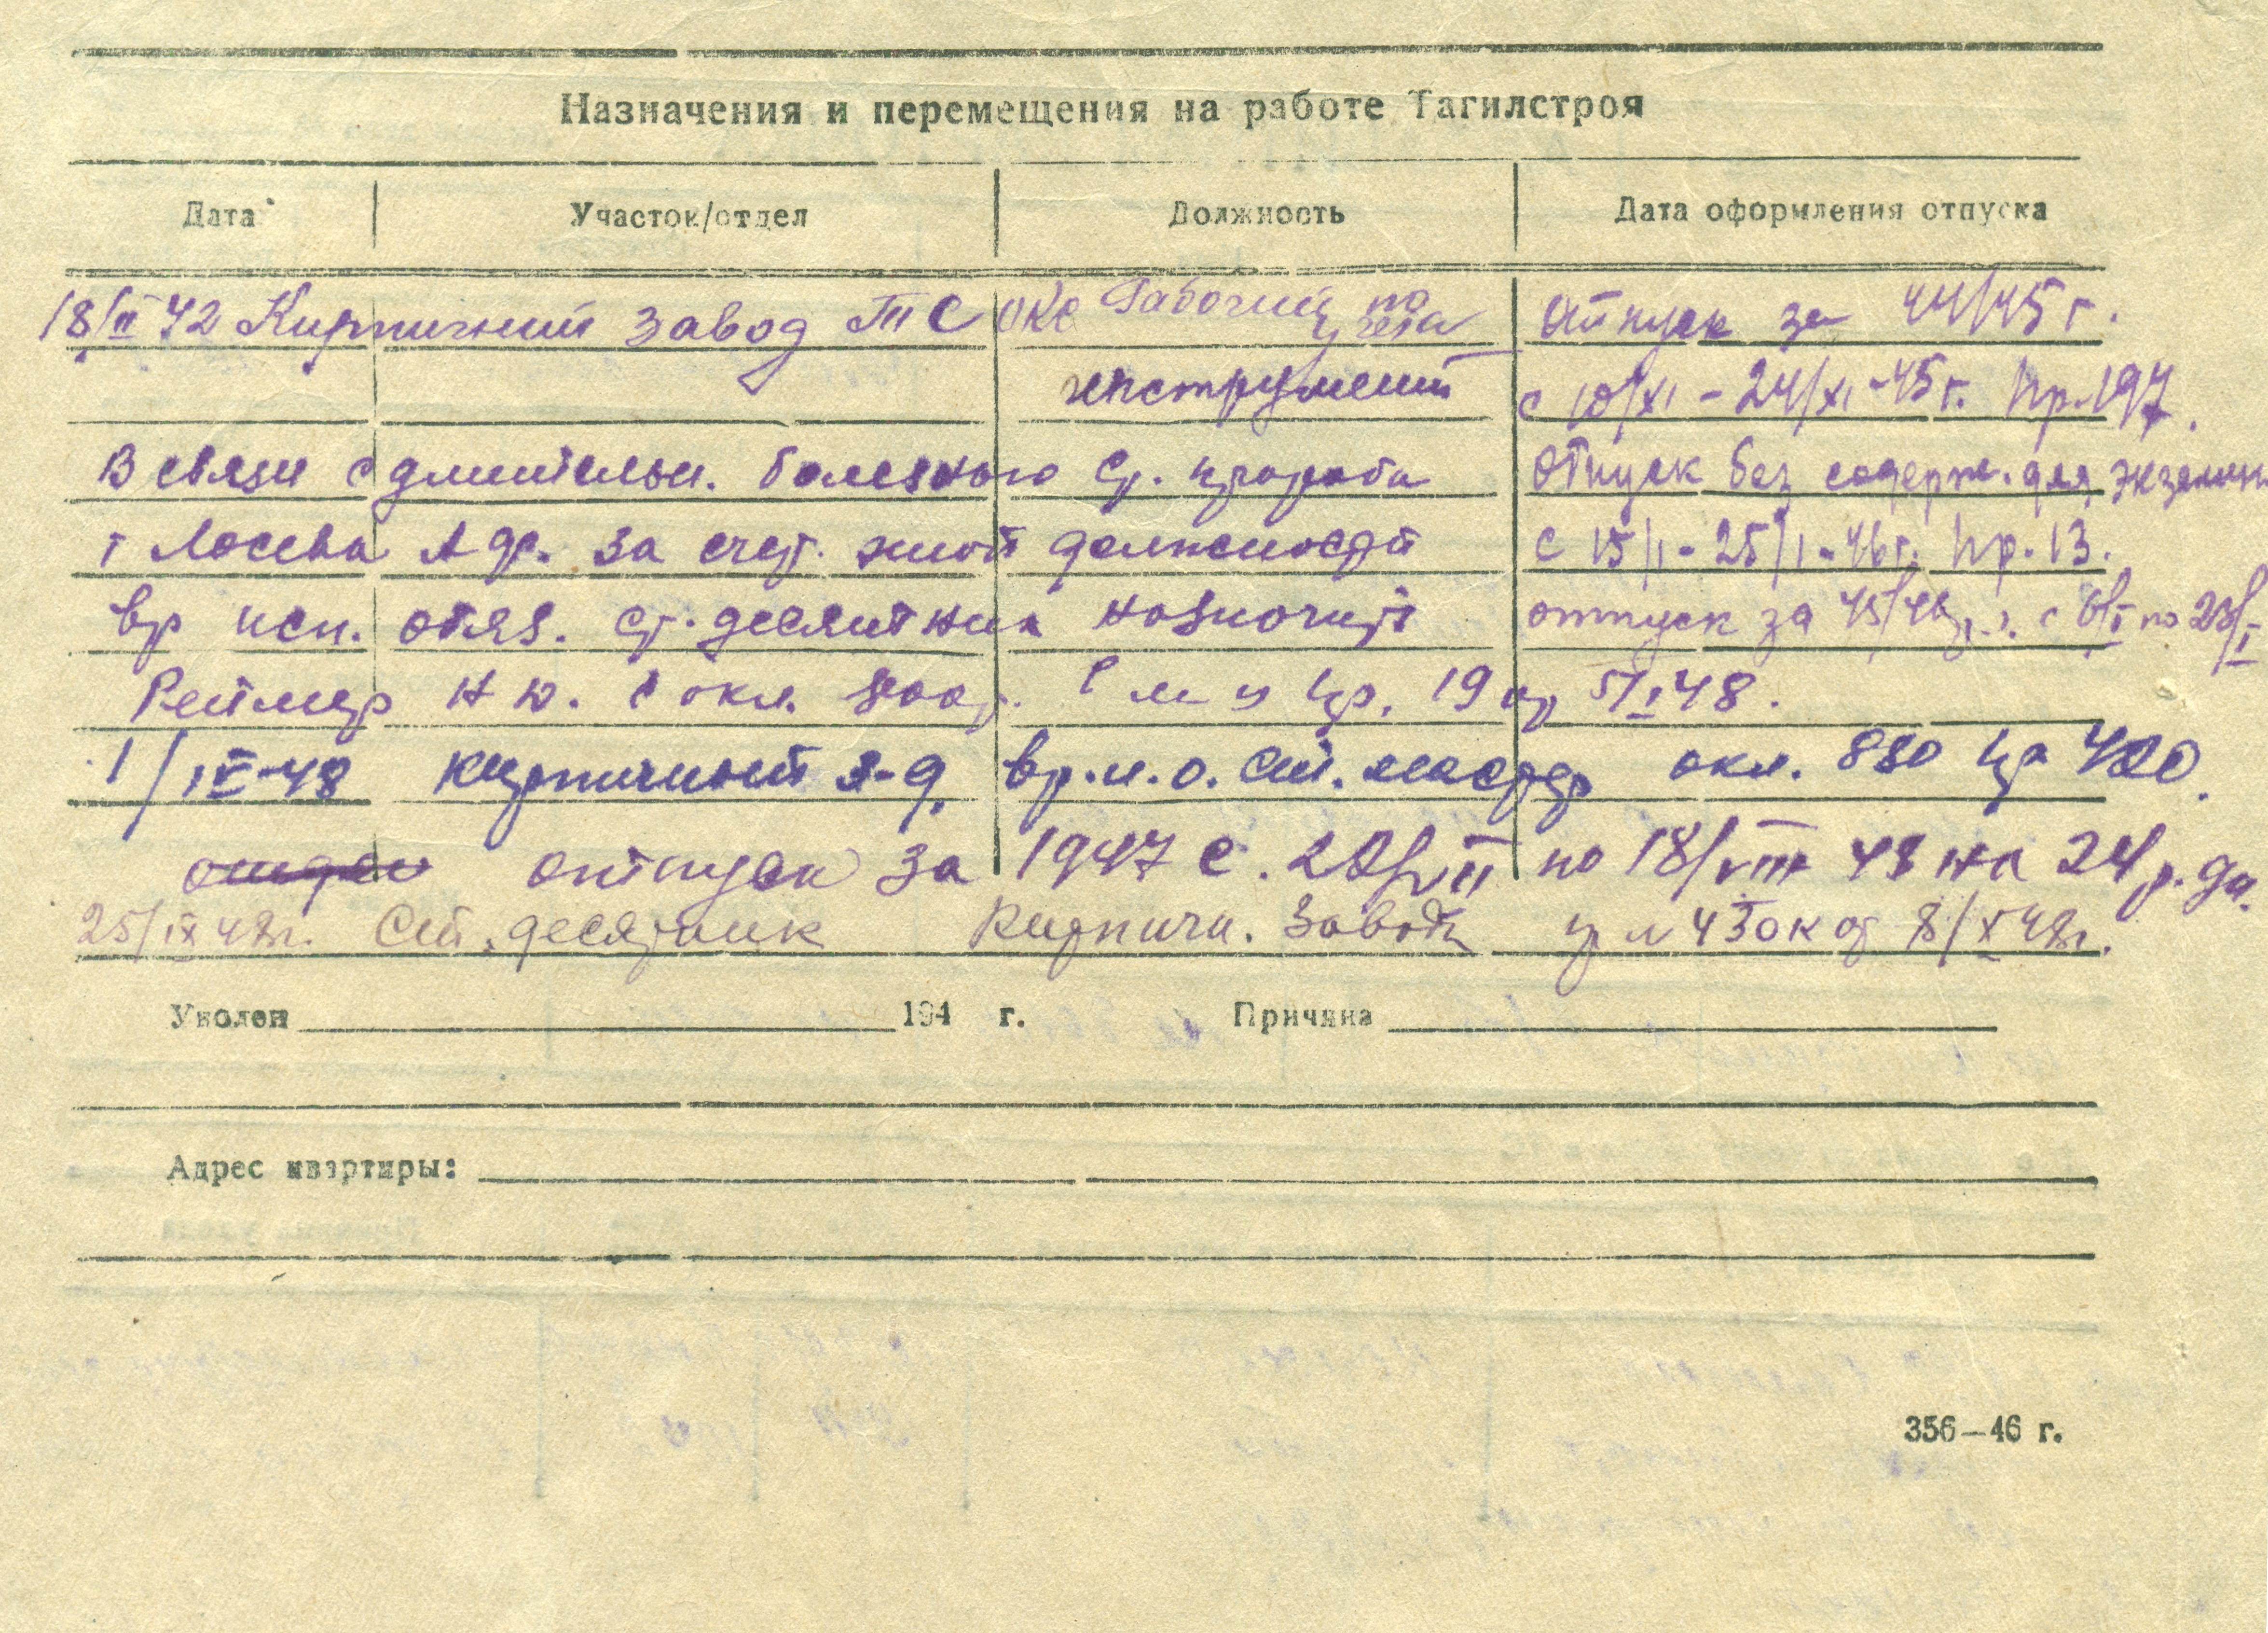 Назначения и перемещения на работе Тагилстроя
Дата Участок/отдел Должность Дата оформления отпуска
18/II 42 Кирпичный завод ТС ОКС Рабочий по учета Отпуск за 44/45 г.
инструмент с 10/XI - 24/XI-45 г. Пр. 197.
В связи с длительн. болезнью ст. прораба Отпуск без содерж. для экзамен
т Лосева А за счет этой должности с 15/I - 25/I-46 г. Пр. 13.
вр исп. обяз. ст. десятник назначит отпуск за 45/46 с 6/I по 28/I
Реймер Н Ю. с окл. 800 р. С м у Пр. 19 от 5/I 48.
1/IV-48 кирпичный з-д вр. и. о. ст. мастер окл. 880 Пр 420.
отпуск за 1947 с. /VII по 18/VIII 48 на 24 р. дн.
25/IX 48г. Ст. десятник Кирпичн. завода пр N 430к от 8/X 48г.
Уволен 194 г. Причина
Адрес квартиры:
356—46 г.